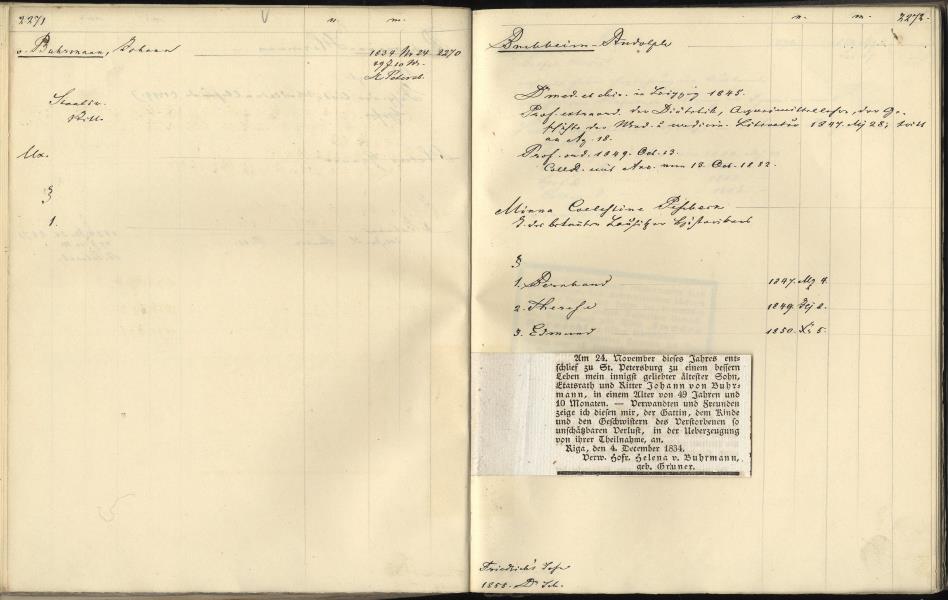 2271
n. m.
v. Buhrmann, Johann
1834 Nr 24 2270
49 J 10 M.
St Petersb.
Staatsr.
Ritt.
Ux.
3
1.
n. m. 2272.
Buchheim Rudolph
Dr med. et chir. in Leipzig 1845.
Prof. extraord. der Diätetik, Arzneimittellehre, der Ge-
schichte der Med. u medicin. Literatur 1847. Mz 28; tritt
an Ag. 18.
Prof. ord. 1849. Oct. 13.
CollR. mit Anc. vom 13. Oct. 1852.
Minna Coelestine Peschek
T. des bekannten Lausitzer Historikers
3
1. Bernhard 1847. Mz 4.
2. Therese 1849.
3. Edmund 1850. 5.
Am 24. November dieses Jahres ent-
schlief zu St. Petersburg zu einem bessern
Leben mein innigst geliebter ältester Sohn,
Etatsrath und Ritter Johann von Buhr-
mann, in einem Alter von 49 Jahren und
10 Monaten. — Verwandten und Freunden
zeige ich diesen mir, der Gattin, dem Kinde
und den Geschwistern des Verstorbenen so
unschätzbaren Verlust, in der Ueberzeugung
von ihrer Theilnahme, an.
Riga, den 4. December 1834.
Verw. Hofr. Helena v. Buhrmann,
geb. Gruner.
Friedrich's
1855. Dr